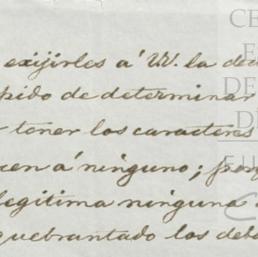 exijirles á VV. la
pido de determinar
tener los caracteres
cen á ninguno; por
legitima ninguna
quebrantado los deb